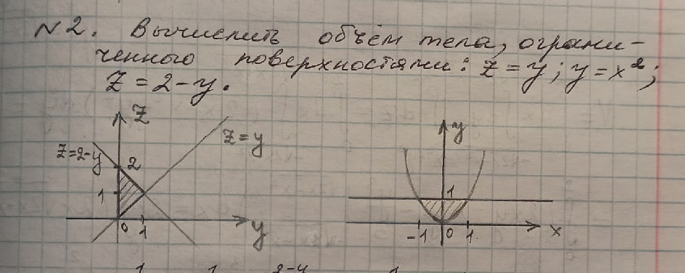 №2. Вычислить объём тела, ограни-
ченного поверхностями: z = y; y = x²;
z = 2 - y.
z
z = y
z=2-y
2
1
0
1
y
y
1
-1
0
1
x